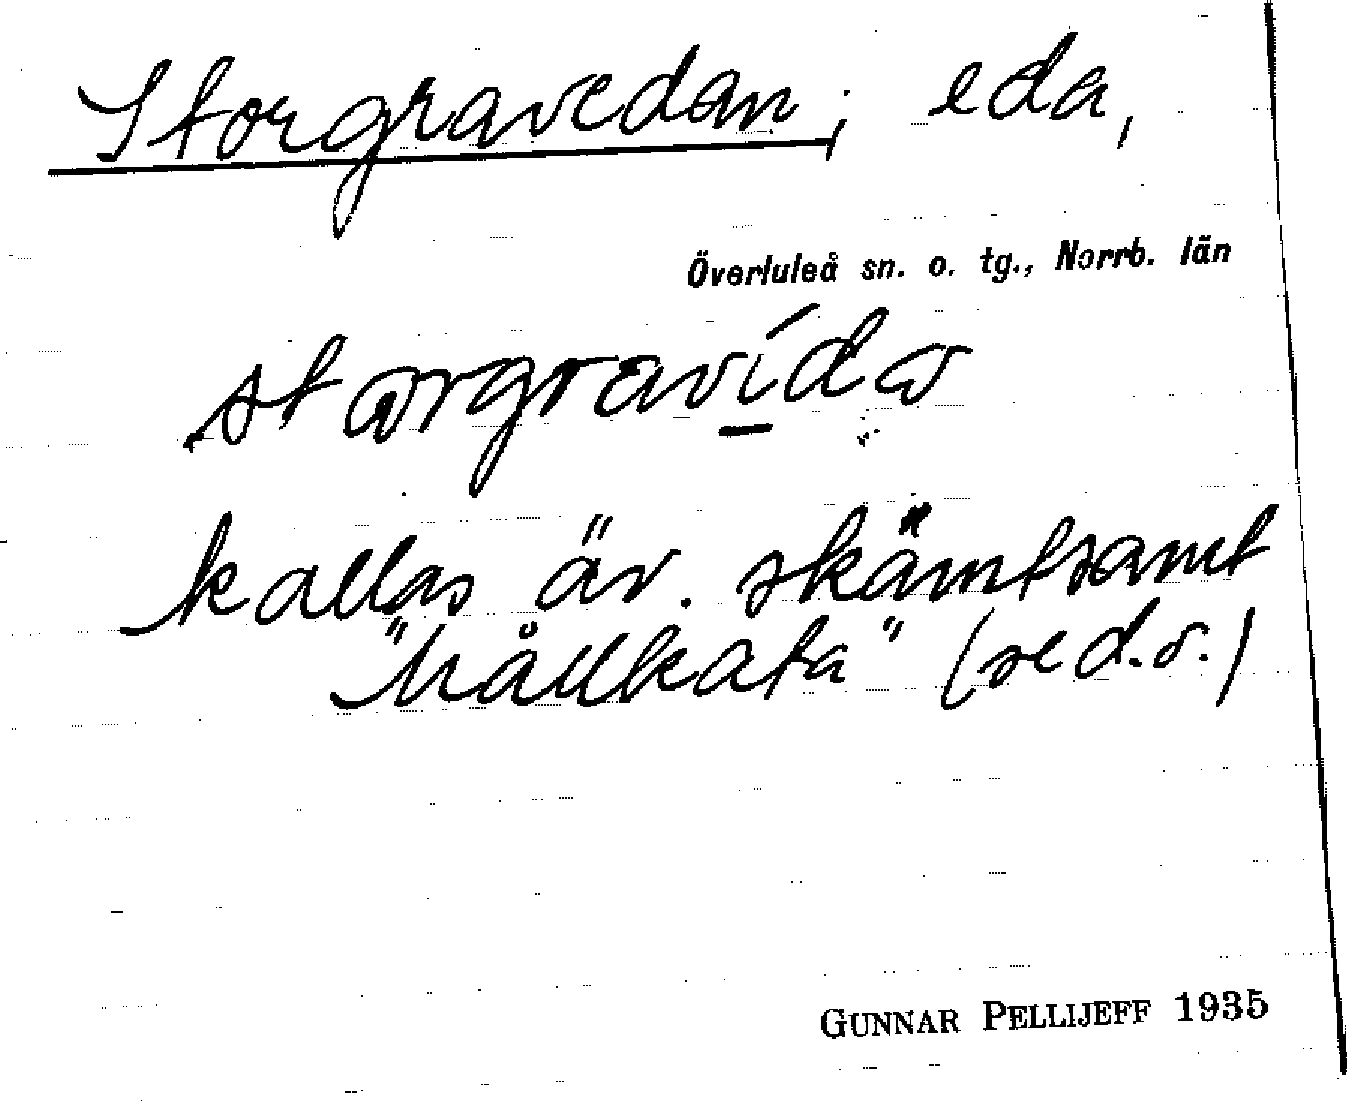 Storgravedan; eda,
Överluleå sn. o. tg., Norrb. län
kallas äv. skämtsamt
"hållkata" (se d.o.)
GUNNAR PELLIJEFF 1935